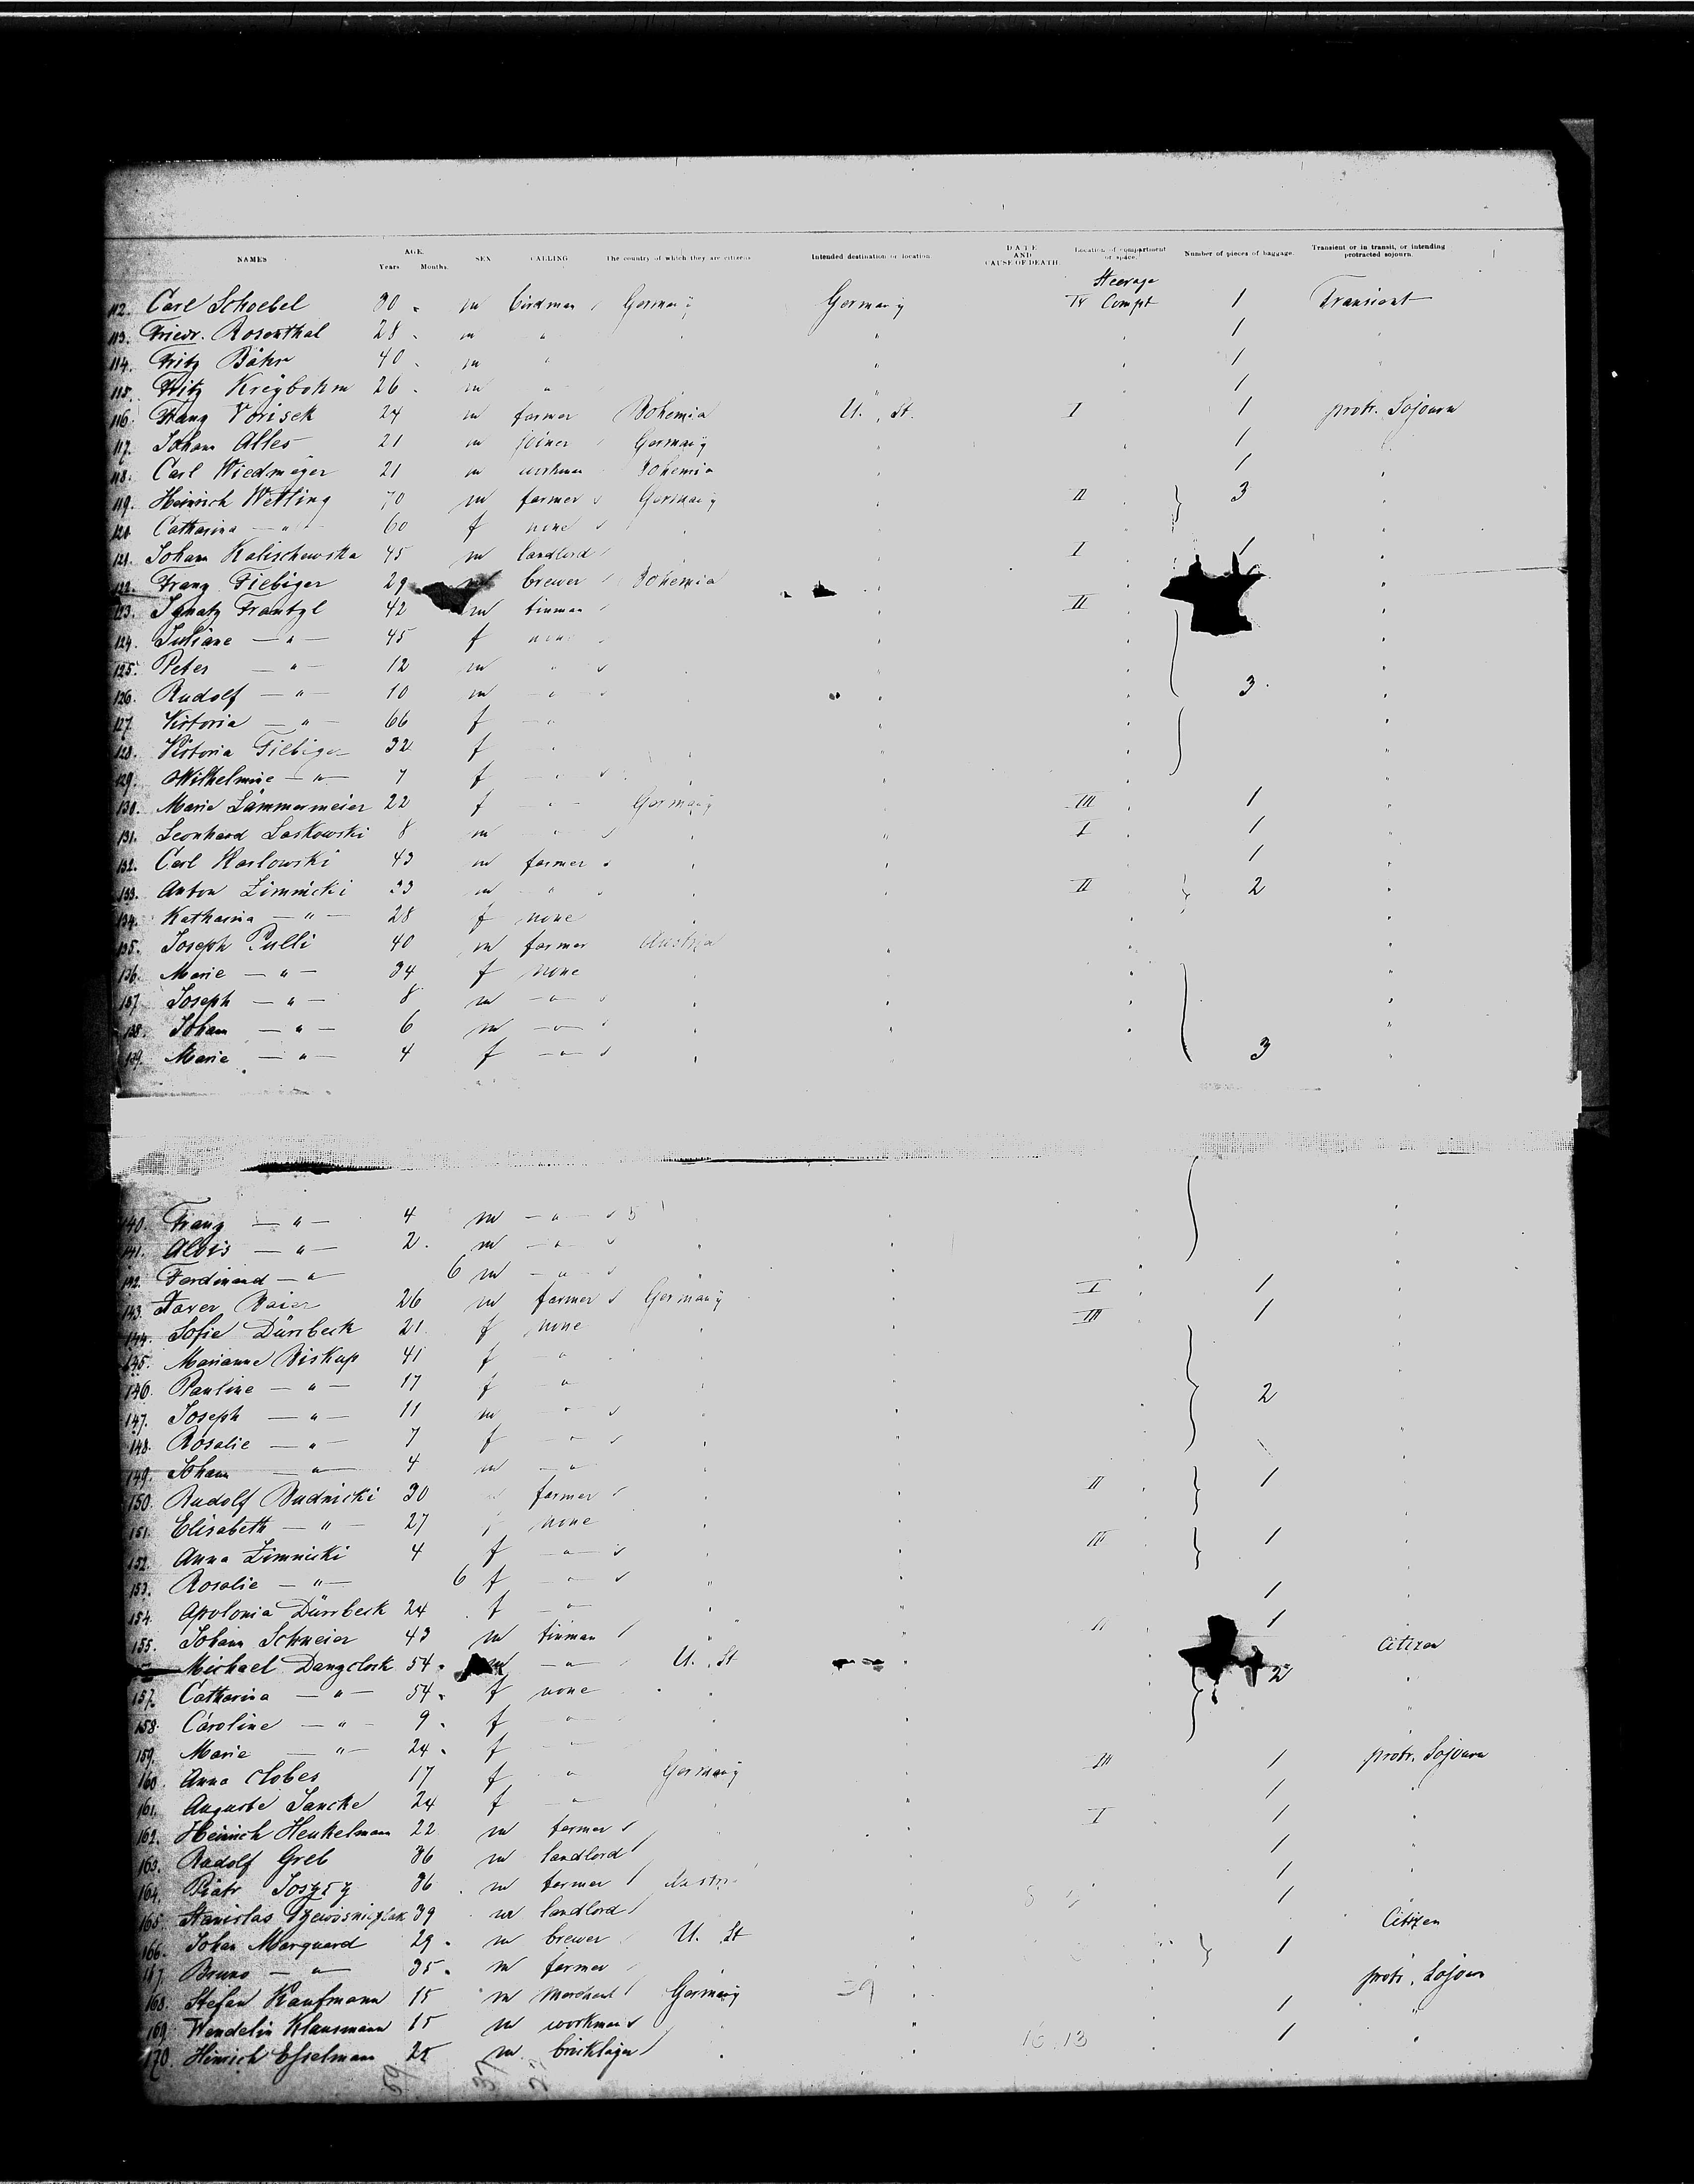 NAMES AGE. Years Months. SEX CALLING The country of which they are citizens Intended destination or location DATE AND CAUSE OF DEATH. Location of compartment or space. Number of pieces of baggage. Transient or in transit, or intending protracted sojourn.
Steerage
112. Carl Schoebel 30 " m birdman Germany Germany IV Compt 1 Transient
113. Friedr. Rosenthal 28 " m " " " 1 "
114. Fritz Bähr 40 " m " " 1 "
115. Fritz Kreybohm 26 " m " " 1
116. Franz Vorisek 24 m farmer Bohemia U. St. I 1 protr. Sojourn
117. Johann Alles 21 m joiner Germany " 1
118. Carl Wiedmeyer 21 m workman Bohemia " 1 "
119. Heinrich Wetling 70 m farmer Germany " II 3 "
120. Catharina — " — 60 f none " "
121. Johann Kalischewska 45 m landlord " I 1 "
122. Franz Fiebiger 29 m brewer Bohemia " "
123. Ignatz Frantzl 42 m tinman " II "
124. Juliane — " — 45 f none " "
125. Peter — " — 12 m " " "
126. Rudolf — " — 10 m " " 3 "
127. Victoria — " — 66 f " " "
128. Victoria Fiebiger 32 f " "
129. Wilhelmine — " — 7 f " " "
130. Marie Lämmermeier 22 f " Germany " III 1 "
131. Leonhard Laskowski 8 m " " I 1 "
132. Carl Karlowski 43 m farmer " " 1 "
133. Anton Zimnicki 33 m " " II 2 "
134. Katharina — " — 28 f none " "
135. Joseph Pulli 40 m farmer Austria " "
136. Marie — " — 34 f none " "
137. Joseph — " — 8 m — " — " "
138. Johann — " — 6 m — " — " "
139. Marie — " — 4 f — " — " 3 "
140. Franz — " — 4 m — " — " "
141. Alois — " — 2 m — " — " "
142. Ferdinand — " 6 m — " — " "
143. Xaver Baier 26 m farmer Germany " I 1
144. Sofie Dürrbeck 21 f none " III 1 "
145. Marianne Biskup 41 f " " "
146. Pauline — " — 17 f " " 2 "
147. Joseph — " — 11 m " " "
148. Rosalie — " — 7 f " " "
149. Johann — " — 4 m " " "
150. Rudolf Budnicki 30 farmer " II 1 "
151. Elisabeth — " — 27 f none " "
152. Anna Zimnicki 4 f — " — " III 1 "
153. Rosalie — " — 6 f — " — " "
154. Apolonia Dürrbeck 24 f — " — " 1 "
155. Johann Schmeier 43 m tinman " II 1
Michael Dangelock 54 " m — " — U. St " 2 Citizen
157. Catharina — " — 54 " f none " " "
158. Caroline — " — 9 " f " " "
159. Marie — " — 24 " f "
160. Anna Clobes 17 f " Germany III 1 protr. Sojourn
161. Auguste Jancke 24 f " " 1 "
162. Heinrich Henkelmann 22 m farmer " I 1 "
163. Rudolf Greb 36 m landlord " 1 "
164. 36 m farmer Austria 1 "
165. Stanislas 39 m landlord " 1
166. Johan Marquard 29 " m brewer U. St " 1 Citizen
167. Bruno — " — 35 " m farmer "
168. Stefan Kaufmann 15 m merchant Germany " protr. Sojour
169. Wendelin Klausmann 15 m workman " " 1 "
170. Hinrich Esselmann 25 m bricklayer " " 16 . 13 1 "